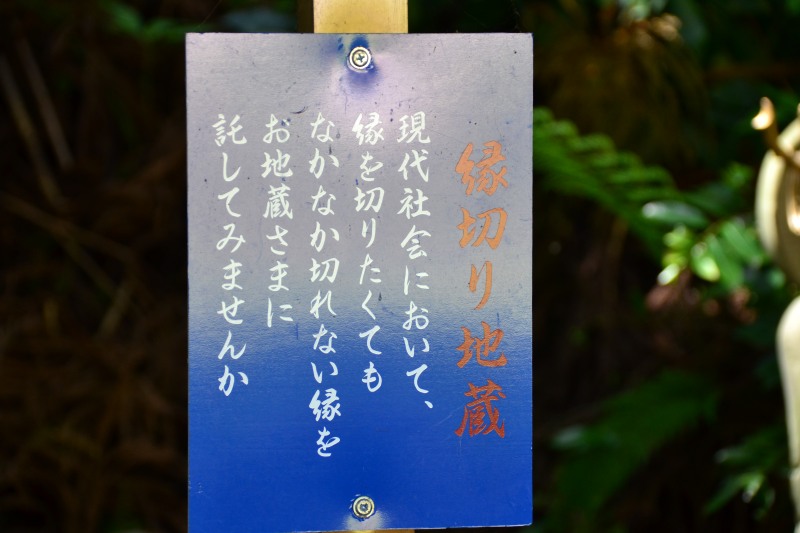 縁切り地蔵
現代社会において、
縁を切りたくても
なかなか切れない縁を
お地蔵さまに
託してみませんか